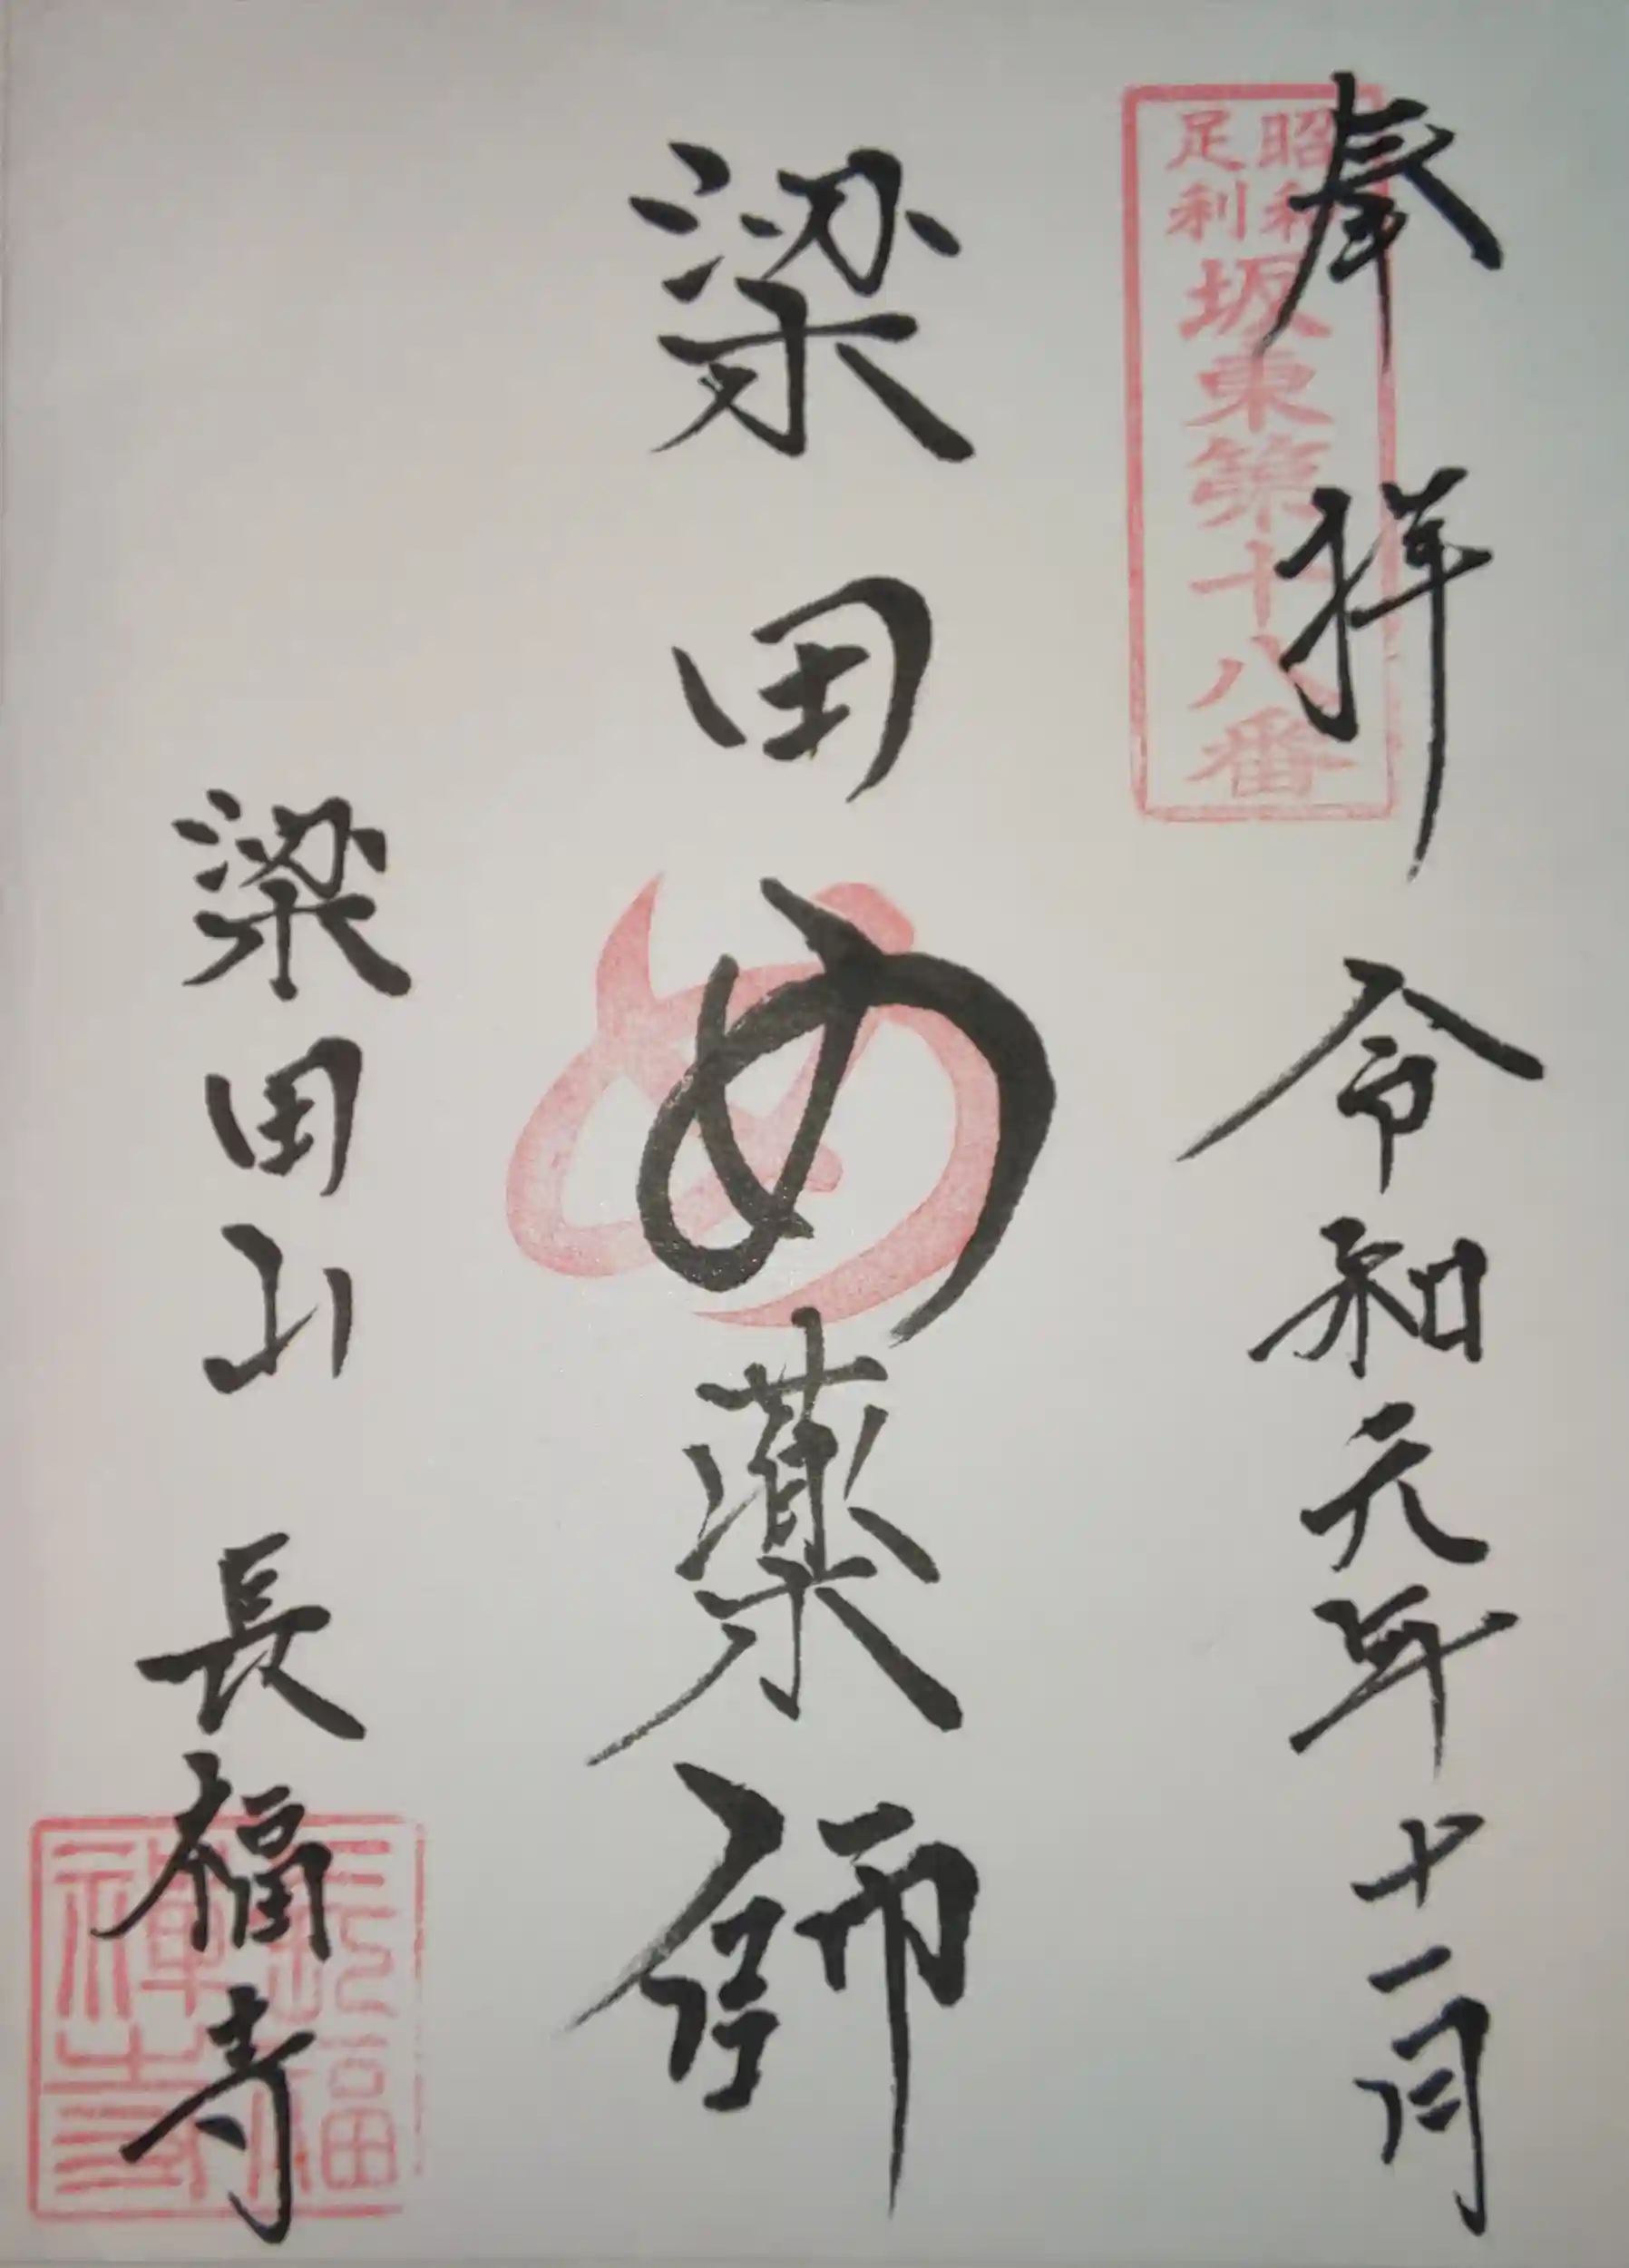 奉拝 令和元年十一月
昭和
足利
坂東第十八番
梁田め薬師
め
梁田山 長福寺
長福
禪寺